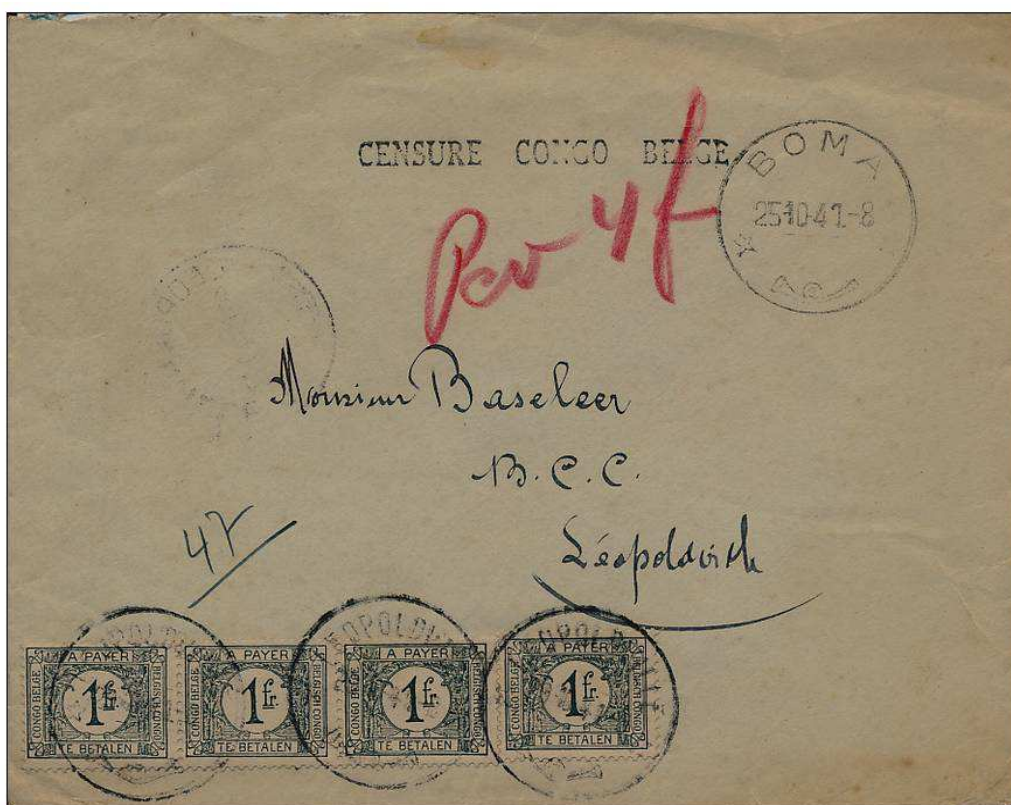 CENSURE CONGO BELGE
BOMA
25-10-41-8
4f
Monsieur Baseleer
B.C.C.
Léopoldville
47
A PAYER
CONGO BELGE
1 fr.
BELGISCH CONGO
TE BETALEN
A PAYER
CONGO BELGE
1 fr.
BELGISCH CONGO
TE BETALEN
A PAYER
CONGO BELGE
1 fr.
BELGISCH CONGO
TE BETALEN
A PAYER
CONGO BELGE
1 fr.
BELGISCH CONGO
TE BETALEN